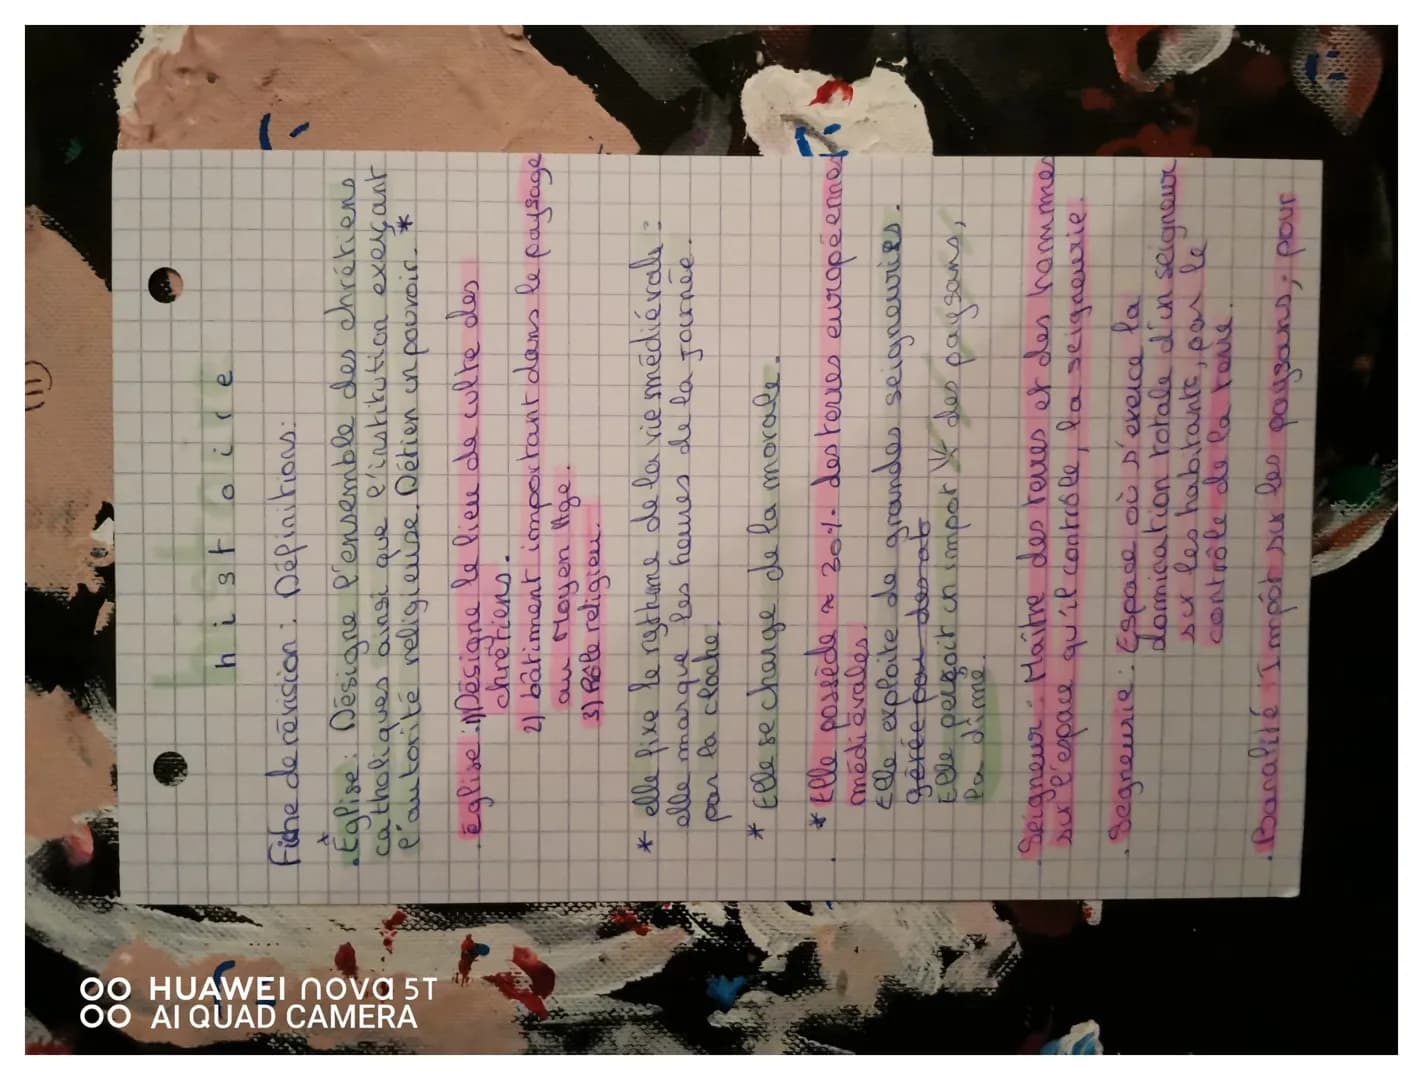 histoire
Fiche de révision : Définitions:
. Église : Désigne l'ensemble des chrétiens
catholiques ainsi que l'institution exerçant
l'autorité religieuse. Détien un pouvoir. *
. église : 1) Désigne le lieu de culte des
chrétiens.
2) bâtiment important dans le paysage
au Moyen Age.
3) Rôle religieu.
* elle fixe le rythme de la vie médiévale :
elle marque les heures de la journée.
par la cloche.
* Elle se charge de la morale.
* Elle possède ≈ 30%. des terres européennes
médiévales.
Elle exploite de grandes seigneuries.
gérée par
Elle perçoit un impot des paysans,
la dîme.
. Seigneur : Maître des terres et des hommes
sur l'espace qu'il contrôle, la seigneurie.
. Seigneurie : Espace où s'exerce la
domination totale d'un seigneur
sur les habitants, par le
contrôle de la terre.
. Banalité : Impôt sur les paysans, pour
HUAWEI nova 5T
AI QUAD CAMERA